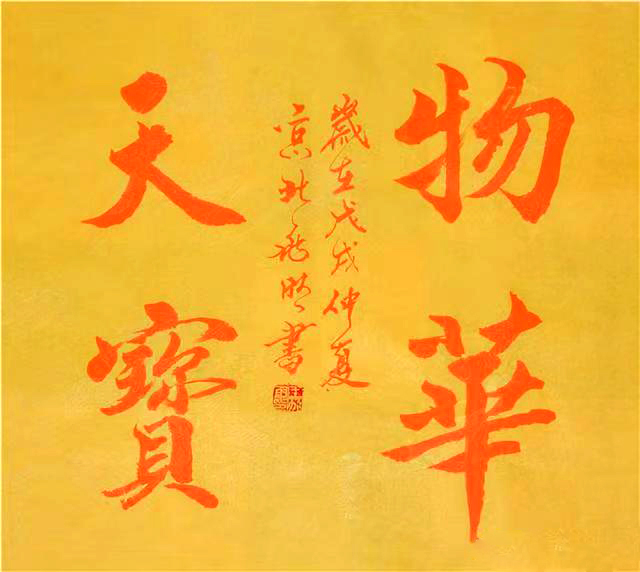 物華
天寶
歲在戊戌仲夏
京北
書